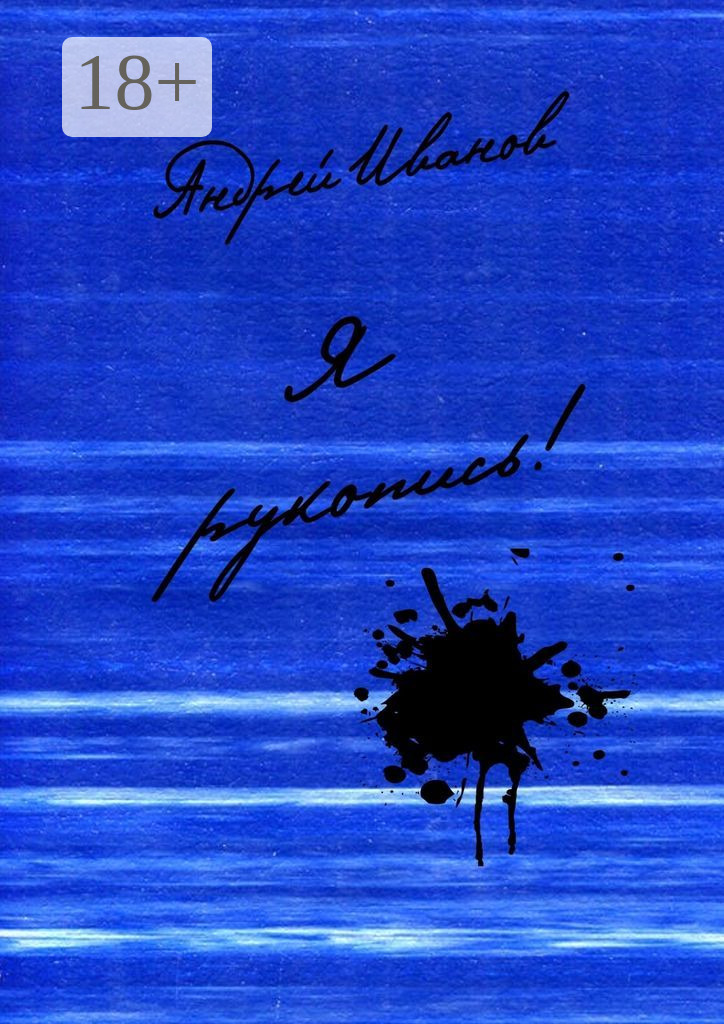 18+
Андрей Иванов
Я
рукопись!